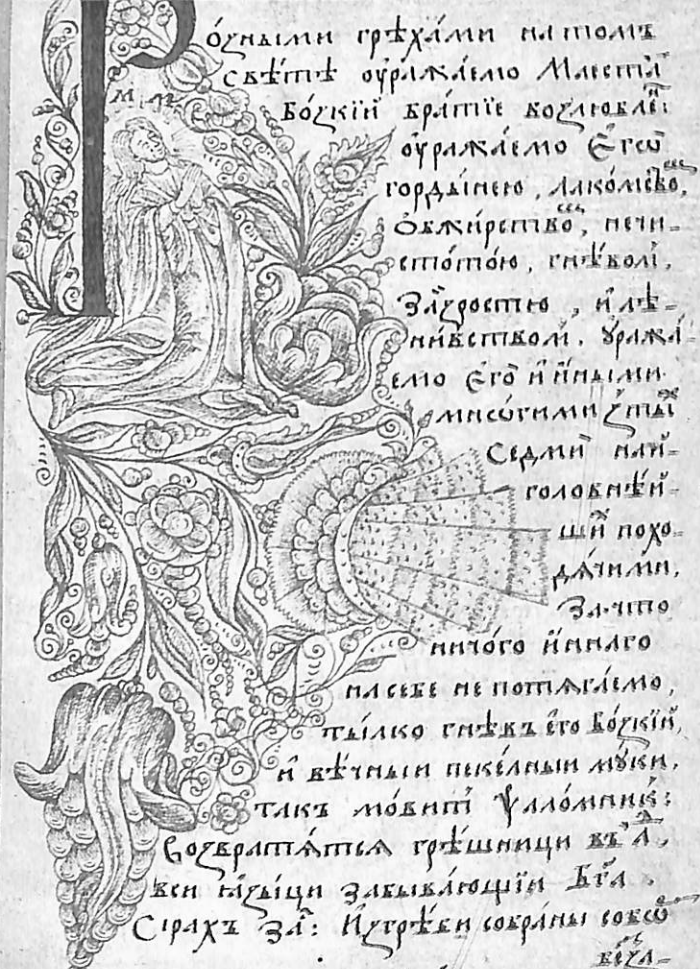 Рожными грѣхами на томъ
свѣтѣ ѹражаемо Маестатъ
Божкїй братїе возлюблеⷩ҇:
ѹражаемо Єгѡ
гордынею, лакомствоⷨ,
ѡбжирствоⷨ, нечи-
стотою, гнѣвоⷨ,
заздростю, и лѣ-
нивствоⷨ. ѹража-
емо Єго и иными
многими з тыⷯ
седми наи-
головнѣй-
шиⷯ похо-
дячими,
за что
ничого иннаго
на себе не потягаемо,
тылко гнѣвъ єго Божкїй,
и вѣчныи пекелныи муки.
такъ мовитъ Ѱаломник:
Возвратятся грѣшници въ аⷣ,
вси языци забывающїи Бг҃а.
Сирахъ